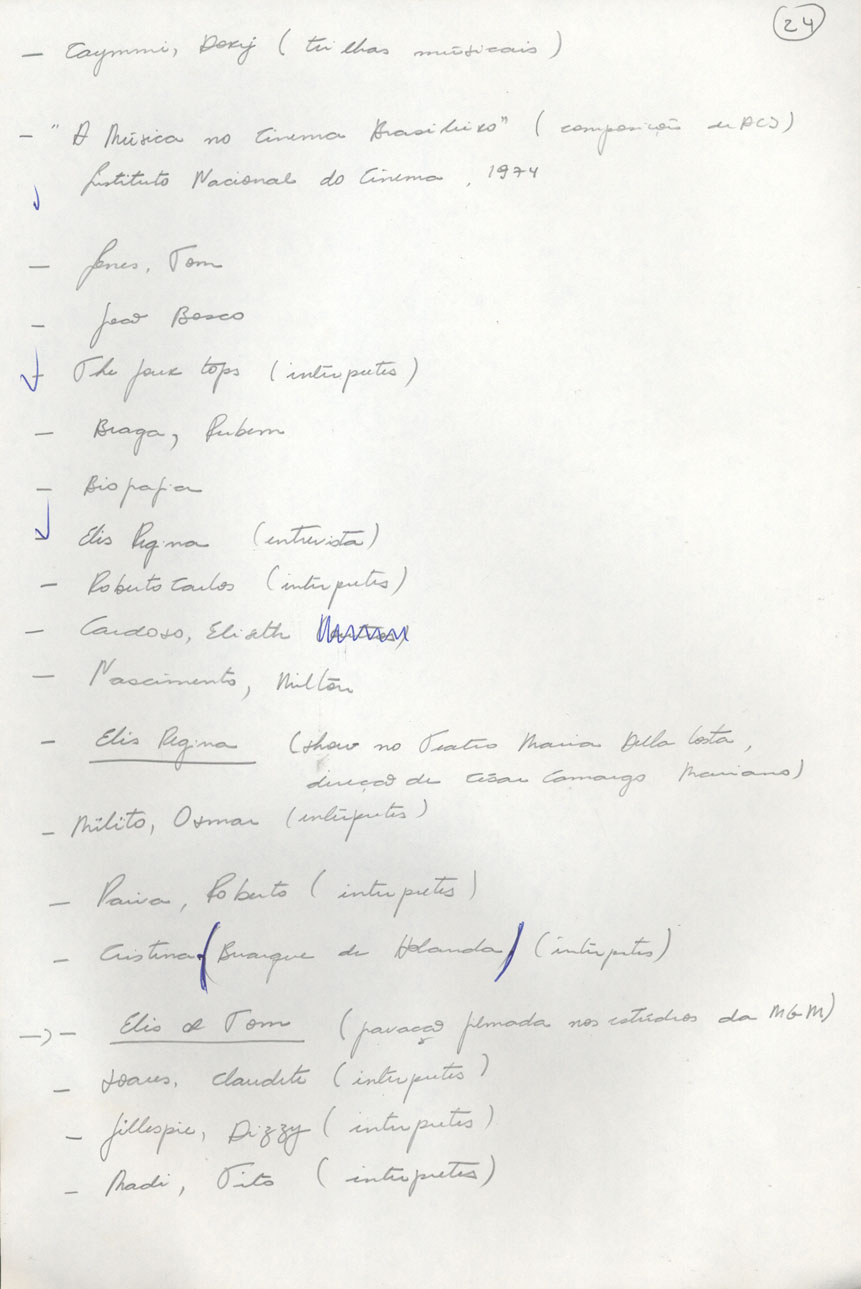 24
— Caymmi, Dory (trilhas músicais)
— "A Música no Cinema Brasileiro" (composição de ACJ)
Instituto Nacional do Cinema, 1974
— Jones, Tom
— João Bosco
— The four tops (intérpretes)
— Braga, Rubem
— Biografia
Elis Regina (entrevista)
— Roberto Carlos (intérpretes)
— Cardoso, Eliseth
— Nascimento, Milton
— Elis Regina (show no Teatro Maria Della Costa,
direção de César Camargo Mariano)
— Milito, Osmar (intérpretes)
— Paiva, Roberto (intérpretes)
— Cristina (Buarque de Holanda) (intérpretes)
→ — Elis & Tom (gravação filmada nos estúdios da MGM)
— Soares, Claudete (intérpretes)
— Gillespie, Dizzy (intérpretes)
— Madi, Tito (intérpretes)